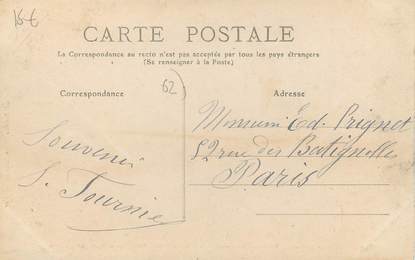 15€
CARTE POSTALE
La Correspondance au recto n'est pas acceptée par tous les pays étrangers
(Se renseigner à la Poste)
Correspondance
62
Adresse
Souvenir
S. Tournie
Monsieur Ed. Prignet
52 rue des Batignolles
Paris